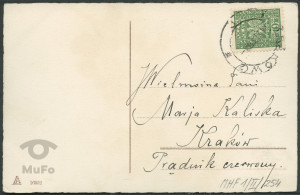 Wielmożna Pani
Marja Kaliska
Kraków
Prądnik czerwony.
MHF 1/II/254
MuFo